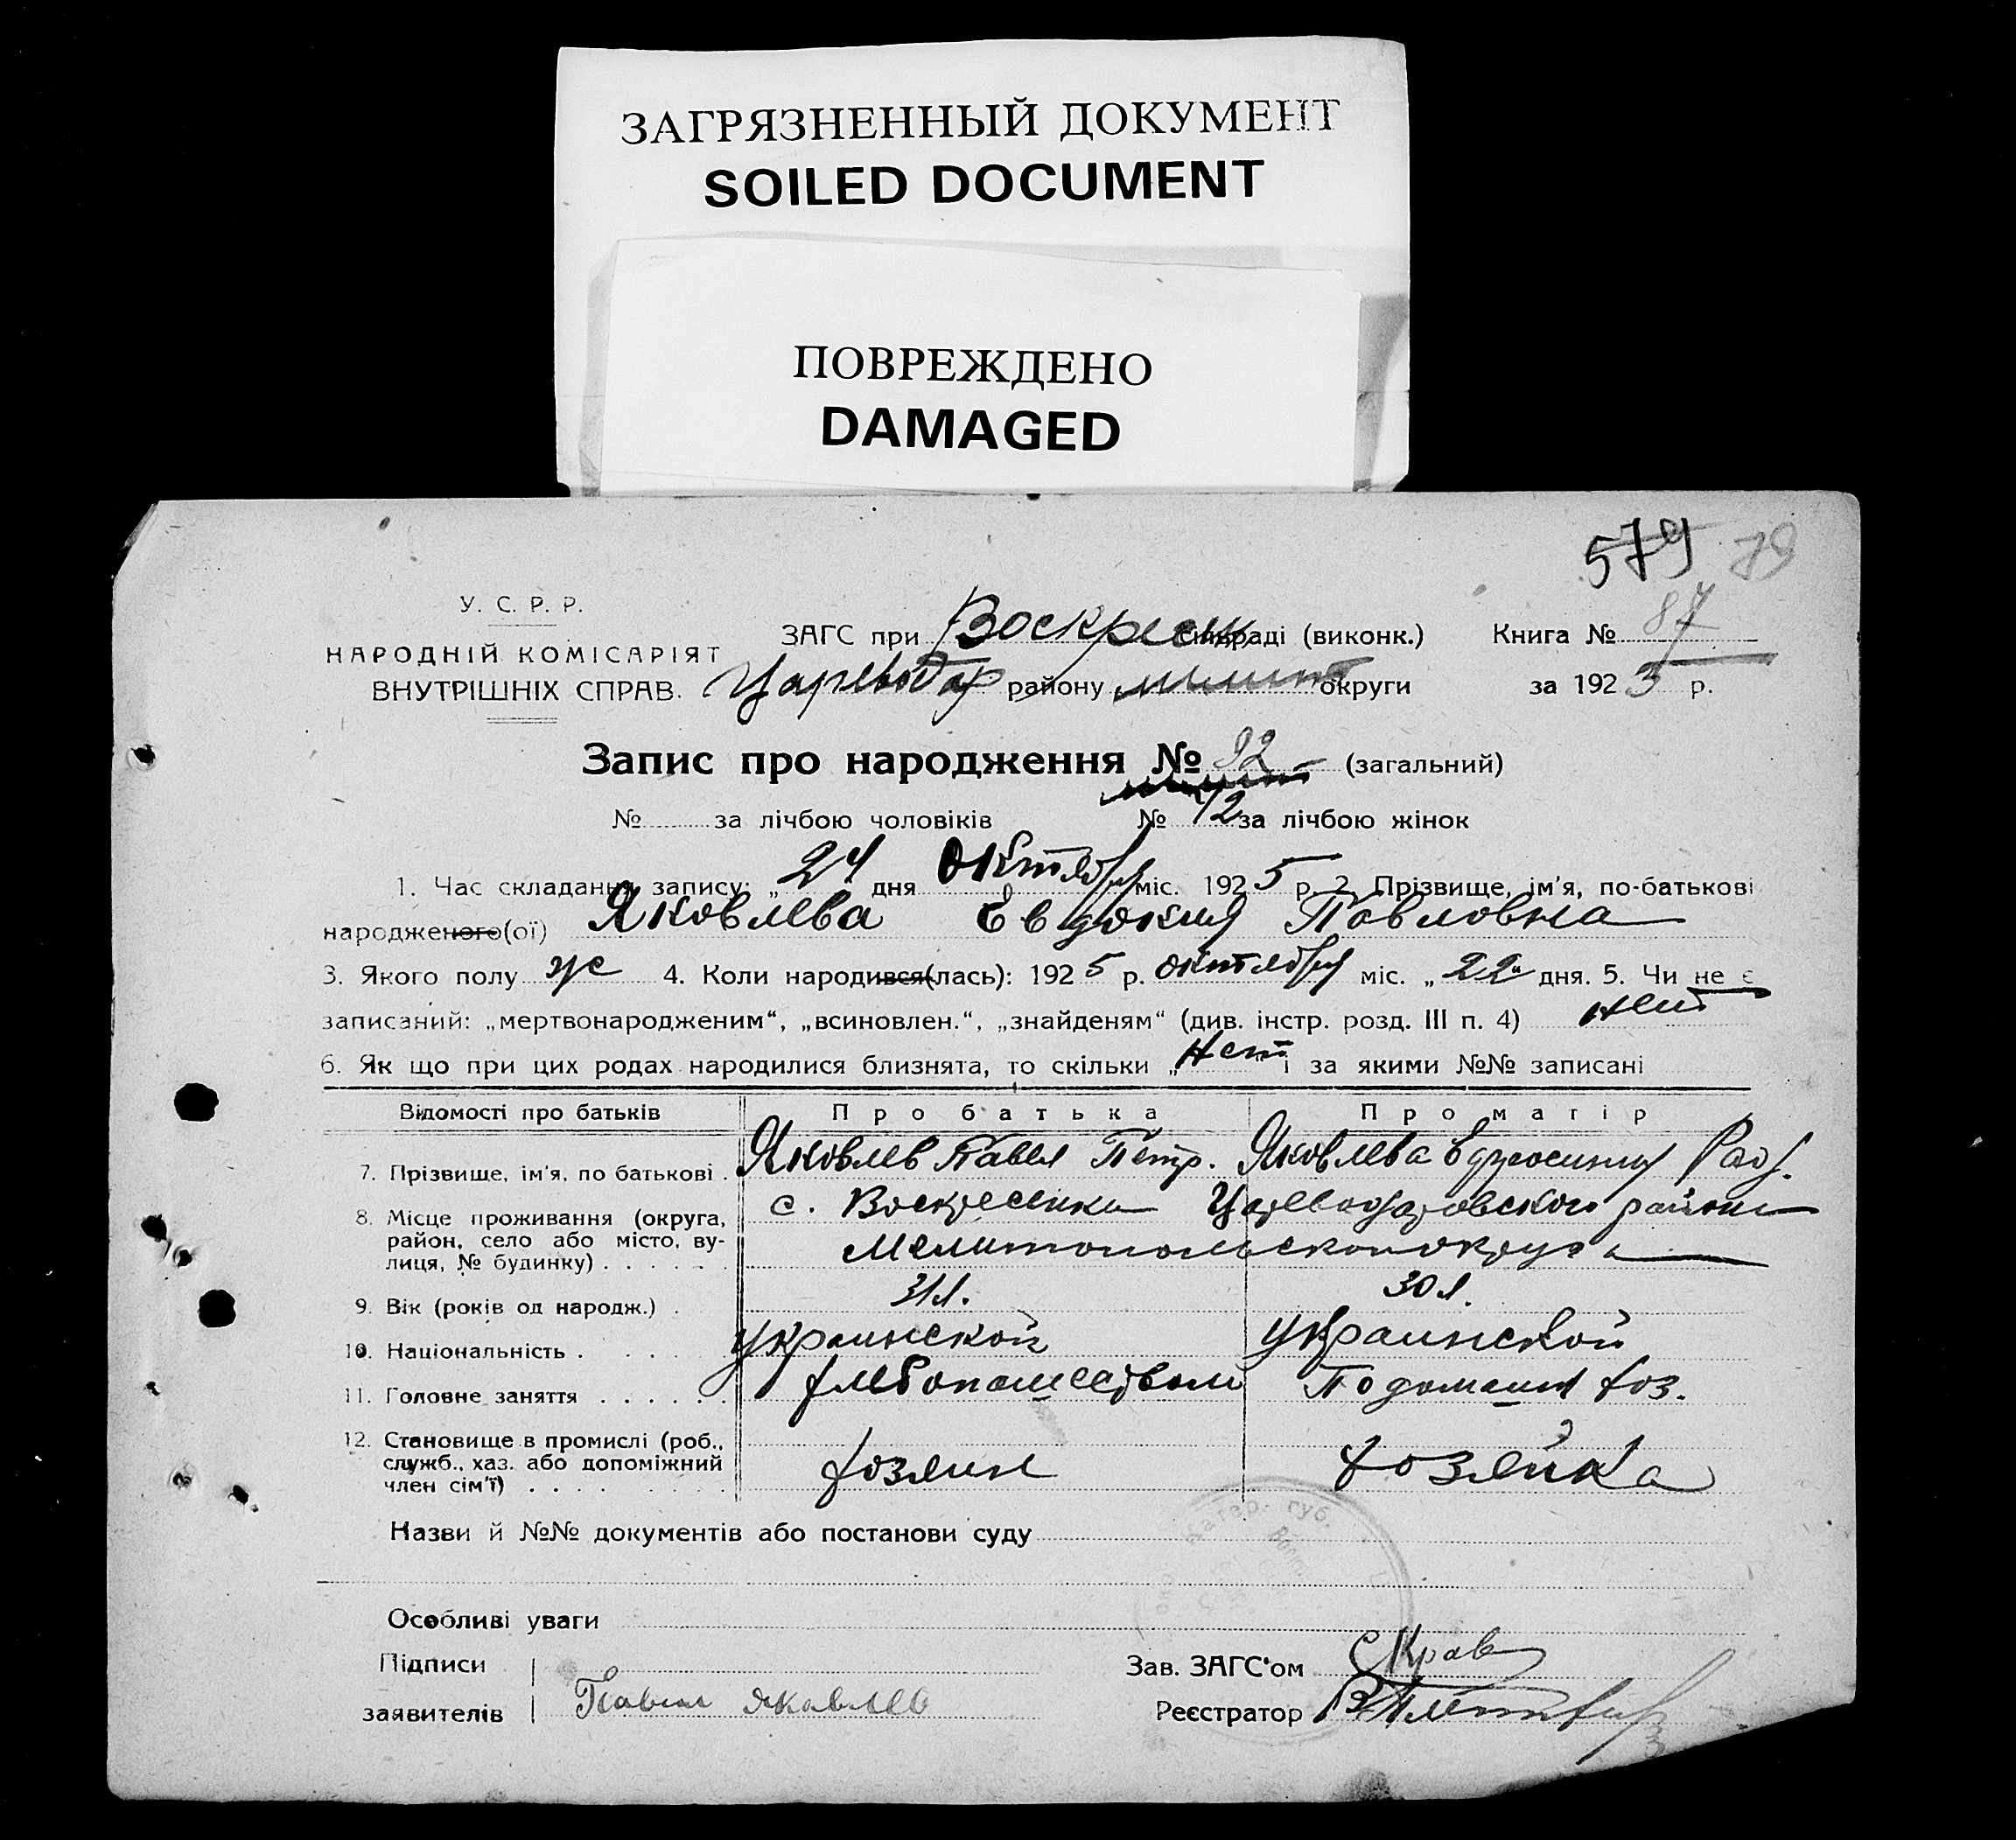 ЗАГРЯЗНЕННЫЙ ДОКУМЕНТ
SOILED DOCUMENT
ПОВРЕЖДЕНО
DAMAGED
579 79
У. С. Р. Р.
НАРОДНІЙ КОМІСАРІЯТ
ВНУТРІШНІХ СПРАВ.
ЗАГС при Воскресен сільраді (виконк.) Книга № 87
району округи за 192 р.
Запис про народження № 92 (загальний)
№ за лічбою чоловіків № 42 за лічбою жінок
1. Час складання запису: „24 дня октября міс. 1925 р. 2. Прізвище, ім'я, по-батькові
народженого(ої) Яковлева Евдокия Павловна
3. Якого полу же 4. Коли народився(лась): 1925 р. октября міс. „22" дня. 5. Чи не є
записаний: „мертвонародженим“, „всиновлен.“, „знайденям“ (див. інстр. розд. III п. 4) нет
6. Як що при цих родах народилися близнята, то скільки „нет" і за якими №№ записані
Відомості про батьків Про батька Про матір
7. Прізвище, ім'я, по батькові . Яковлев Павел Петр. Яковлева Ефросиния
8. Місце проживання (округа,
район, село або місто, ву-
лиця, № будинку) . . . . . .
с. Воскресенка Царевоадаровского района
Мелитопольского округа
9. Вік (років од народж.) . 31 л. 30 л.
10. Національність . украинской украинской
11. Головне заняття . . . . . . хлебопашеством По домашн хоз.
12. Становище в промислі (роб.,
служб., хаз. або допоміжний
член сім'ї) . . . .
хозяин хозяйка
Назви й №№ документів або постанови суду
Катер. губ.
Особливі уваги
Підписи
заявителів
Павел Яковлев
Зав. ЗАГС'ом СКрав
Реєстратор